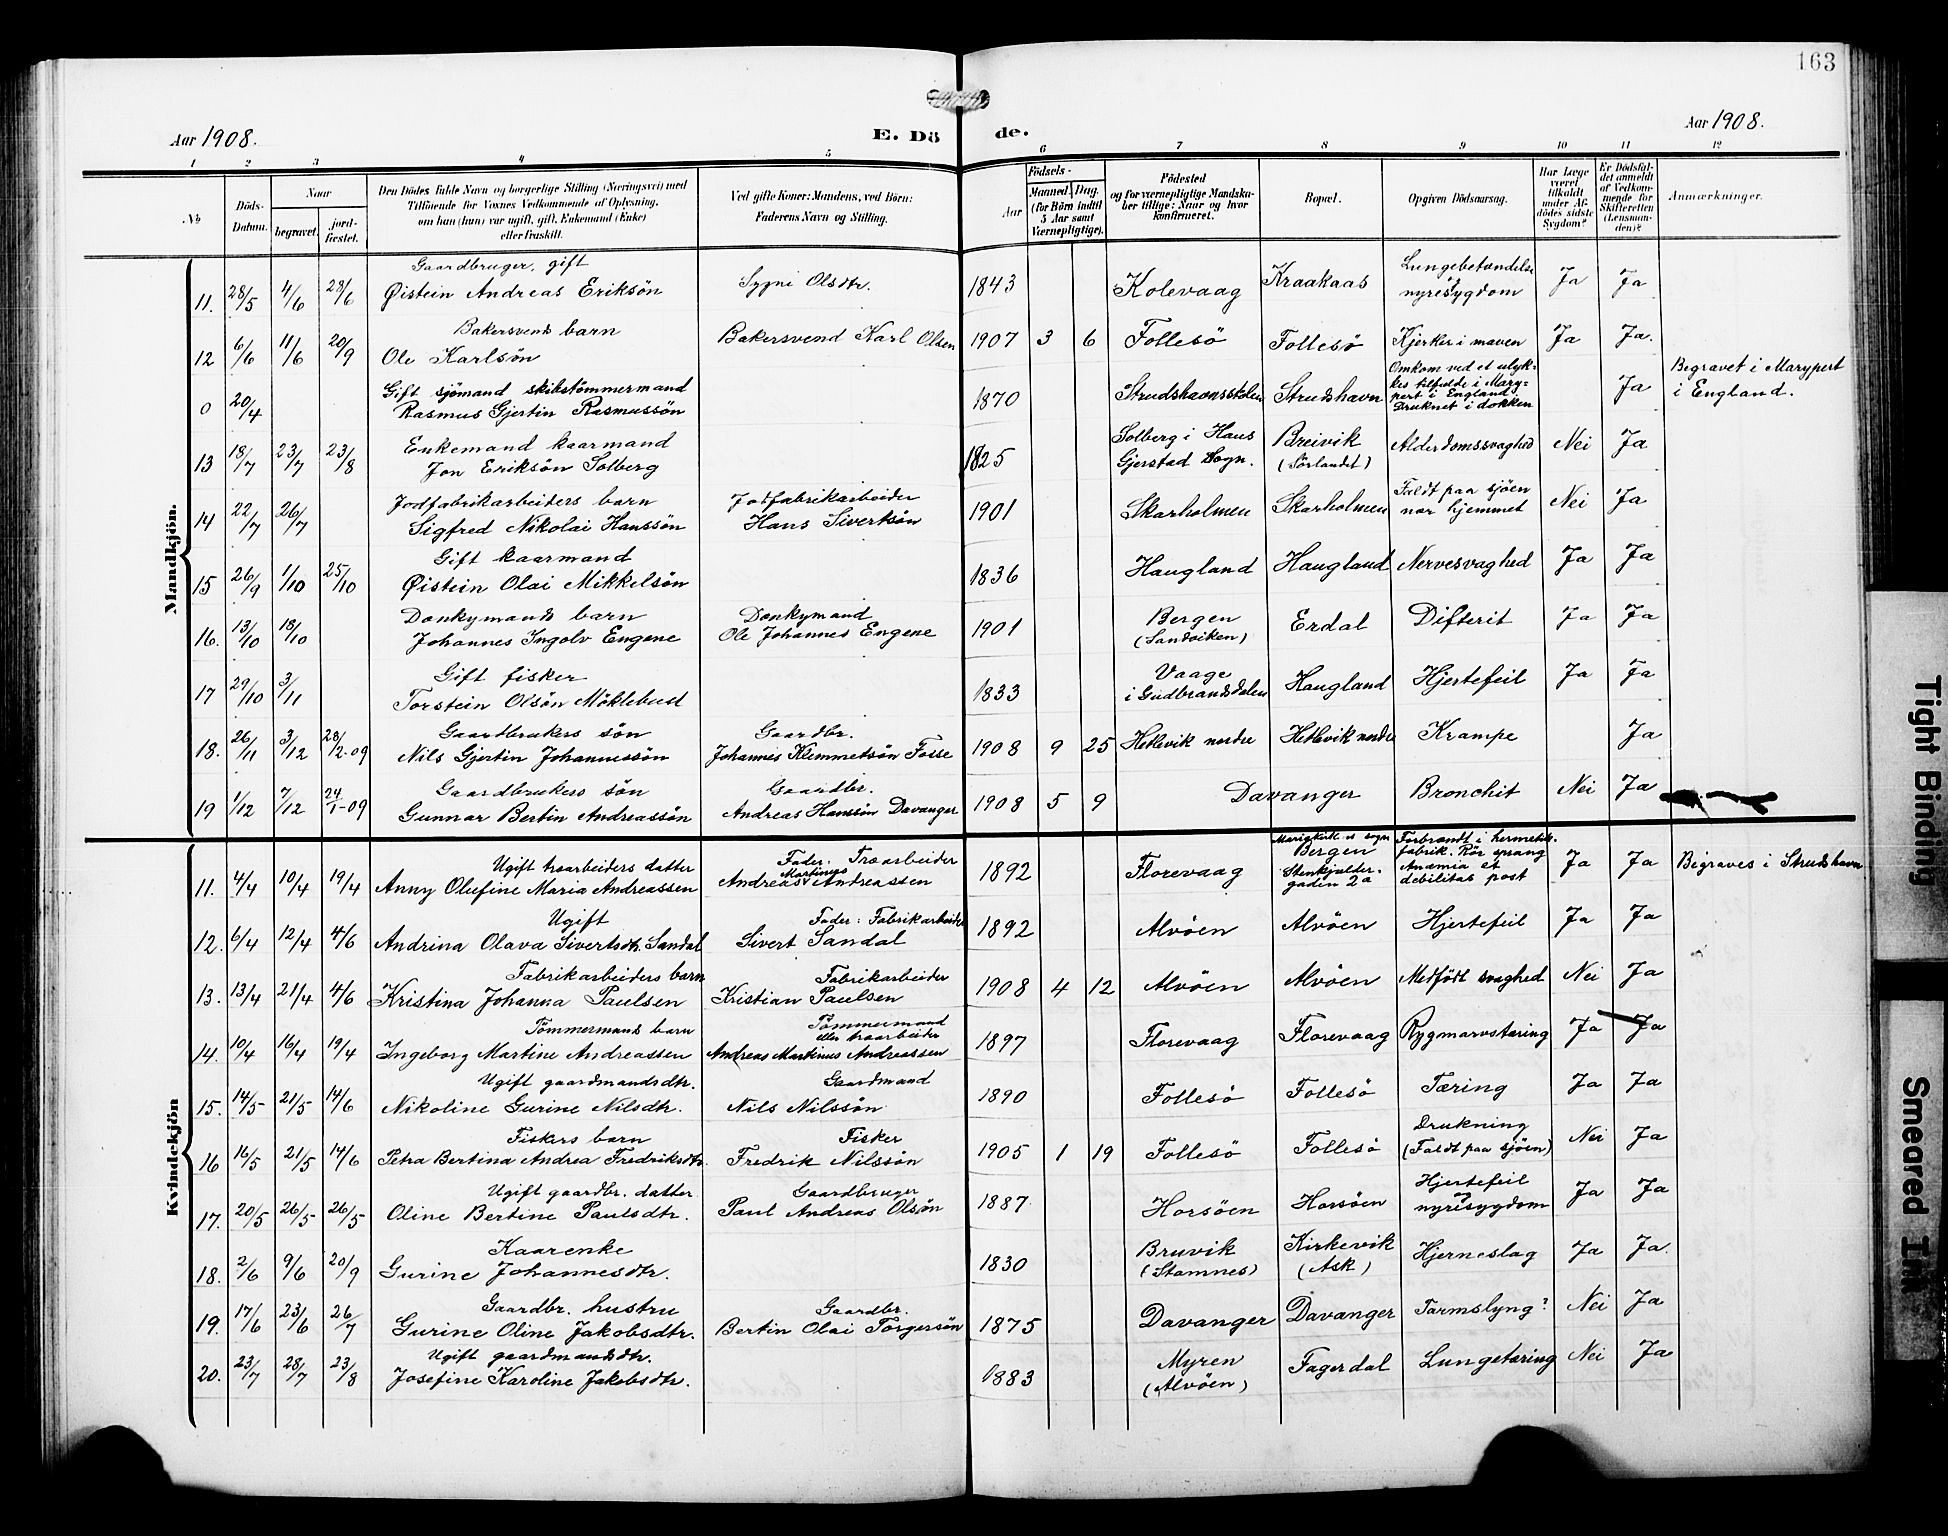 163
Aar 1908.
E. Dö
de.
Aar 1908.
1 2 3 4 5 6 7 8 9 10 11 12
No
Döds-Datum.
Naar
begravet.
jord-fæstet.
Den Dödes fulde Navn og borgerlige Stilling (Næringsvei) med
Tilföiende for Voxnes Vedkommende af Oplysning,
om han (hun) var ugift, gift, Enkemand (Enke)
eller fraskilt.
Ved gifte Koner: Mandens, ved Börn:
Faderens Navn og Stilling.
Födsels-
Aar
Maaned. Dag.
(for Börn indtil
5 Aar samt
Værnepligtige).
Födested
og for værnepligtige Mandska-
ber tillige: Naar og hvor
konfirmeret.
Bopæl.
Opgiven Dödsaarsag.
Har Læge
været
tilkaldt
under Af-
dödes sidste
Sygdom?
Er Dödsfal-
det anmeldt
af Vedkom-
mende for
Skifteretten
(Lensman-
den)?
Anmærkninger.
Mandkjön.
Gaardbruger, gift
11. 28/5 4/6 28/6 Øistein Andreas Eriksön Sygni Olsdtr. 1843 Kolevaag Kraakaas Lungebetændelse
nyresygdom Ja Ja
Bakersvends barn
12 6/6 11/6 20/9 Ole Karlsön Bakersvend Karl Olsen 1907 3 6 Follesö Follesö Kjerker i maven Ja Ja.
Gift sjömand skibstömmermand
0 20/4 Rasmus Gjertin Rasmussön 1870 Strudshavnsstolen Strudshavn Omkom ved et ulyk-
kes tilfælde i Mary-
port i England.
Druknet i dokken Ja Begravet i Marypert
i England.
Enkemand kaarmand
13 18/7 23/7 23/8 Jon Eriksön Solberg 1825 Solberg i Haus
Gjerstad Sogn. Breivik
(Sörlandet) Alderdomssvaghed Nei Ja
Jodfabrikarbeiders barn Jodfabrikarbeider
14 22/7 26/7 Sigfred Nikolai Hanssön Hans Sivertsön 1901 Skarholmen Skarholmen Faldt paa sjöen
nær hjemmet Nei Ja
Gift kaarmand
15 26/9 1/10 25/10 Øistein Olai Mikkelsön 1836 Haugland Haugland Nervesvaghed Ja Ja
Donkymands barn Donkymand
16. 13/10 18/10 Johannes Ingolv Engene Ole Johannes Engene 1901 Bergen
(Sandviken) Erdal Difterit Ja Ja
Gift fisker
17 29/10 3/11 Torstein Olsön Möklebust 1833 Vaage
i Gudbrandsdalen Haugland Hjertefeil Ja Ja
Gaardbrukers sön Gaardbr.
18. 26/11 3/12 28/2-09 Nils Gjertin Johannessön Johannes Klemmetsön Fosse 1908 9 25 Hetlevik nordre Hetlevik nordre Krampe Ja
Gaardbrukers sön Gaardbr.
19 1/12 7/12 24/1-09 Gunnar Bertin Andreassön Andreas Hanssön Davanger 1908 5 9 Davanger Bronchit Nei Ja
Kvindekjön
Ugift træarbeiders datter Fader: Træarbeider
11. 4/4 10/4 19/4 Anny Olufine Maria Andreassen Andreas Martinus Andreassen 1892 Florevaag Mariakirkens sogn
Bergen
Stenkjælder-
gaden 2a Forbrændt i hermetik-
fabrik. Rör sprang
Anæmia et
debilitas post Ja Ja Begraves i Strudshavn
Ugift Fader: Fabrikarbeider
12. 6/4 12/4 4/6 Andrina Olava Sivertsdtr. Sandal Sivert Sandal 1892 Alvöen Alvöen Hjertefeil Ja Ja
Fabrikarbeiders barn Fabrikarbeider
13. 13/4 21/4 4/6 Kristina Johanna Paulsen Kristian Paulsen 1908 4 12 Alvöen Alvöen Medfödt svaghed Nei Ja
Tömmermands barn Tömmermand
eller træarbeider
14. 10/4 16/4 19/4 Ingeborg Martine Andreassen Andreas Martinus Andreassen 1897 Florevaag Florevaag Rygmarvstæring Ja Ja
Ugift gaardmandsdtr. Gaardmand
15. 14/5 21/5 14/6 Nikoline Gurine Nilsdtr. Nils Nilssön 1890 Follesö Follesö Tæring Ja Ja
Fiskers barn Fisker
16 16/5 21/5 14/6 Petra Bertina Andrea Fredriksdtr. Fredrik Nilssön 1905 1 19 Follesö Follesö Drukning
(Faldt paa sjöen) Nei Ja
Ugift gaardbr. datter Gaardbruger
17. 20/5 26/5 26/5 Oline Bertine Paulsdtr. Paul Andreas Olsön 1887 Horsöen Horsöen Hjertefeil
nyresygdom Ja Ja
Kaarenke
18. 2/6 9/6 20/9 Gurine Johannesdtr. 1830 Bruvik
(Stamnes) Kirkevik
(Ask) Hjerneslag Ja Ja.
Gaardbr. hustru Gaardbr.
19. 17/6 23/6 26/7 Gurine Oline Jakobsdtr. Bertin Olai Torgersön 1875 Davanger Davanger Tarmslyng? Nei Ja
Ugift gaardmandsdtr.
20. 23/7 28/7 23/8 Josefine Karoline Jakobsdtr. 1883 Myren
(Alvöen) Fagerdal Lungetæring Nei Ja
Tight Binding
Smeared Ink